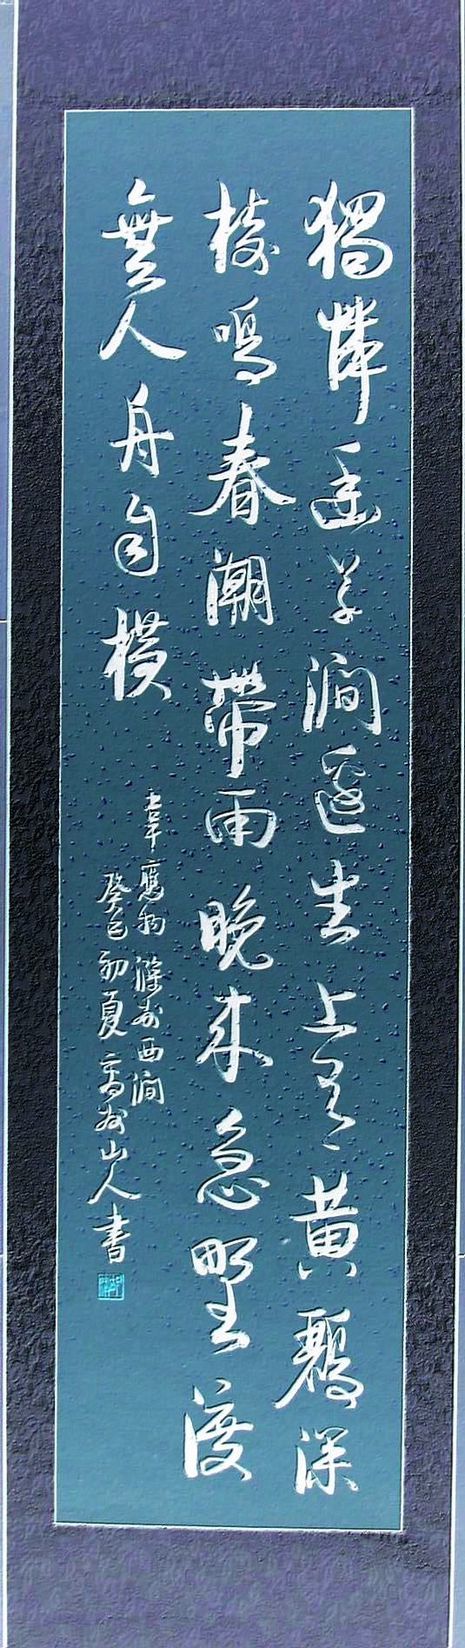 獨憐幽草澗邊生上有黃鸝深
樹鳴春潮帶雨晚來急野渡
無人舟自橫
韋應物滁州西澗
癸巳初夏山人書